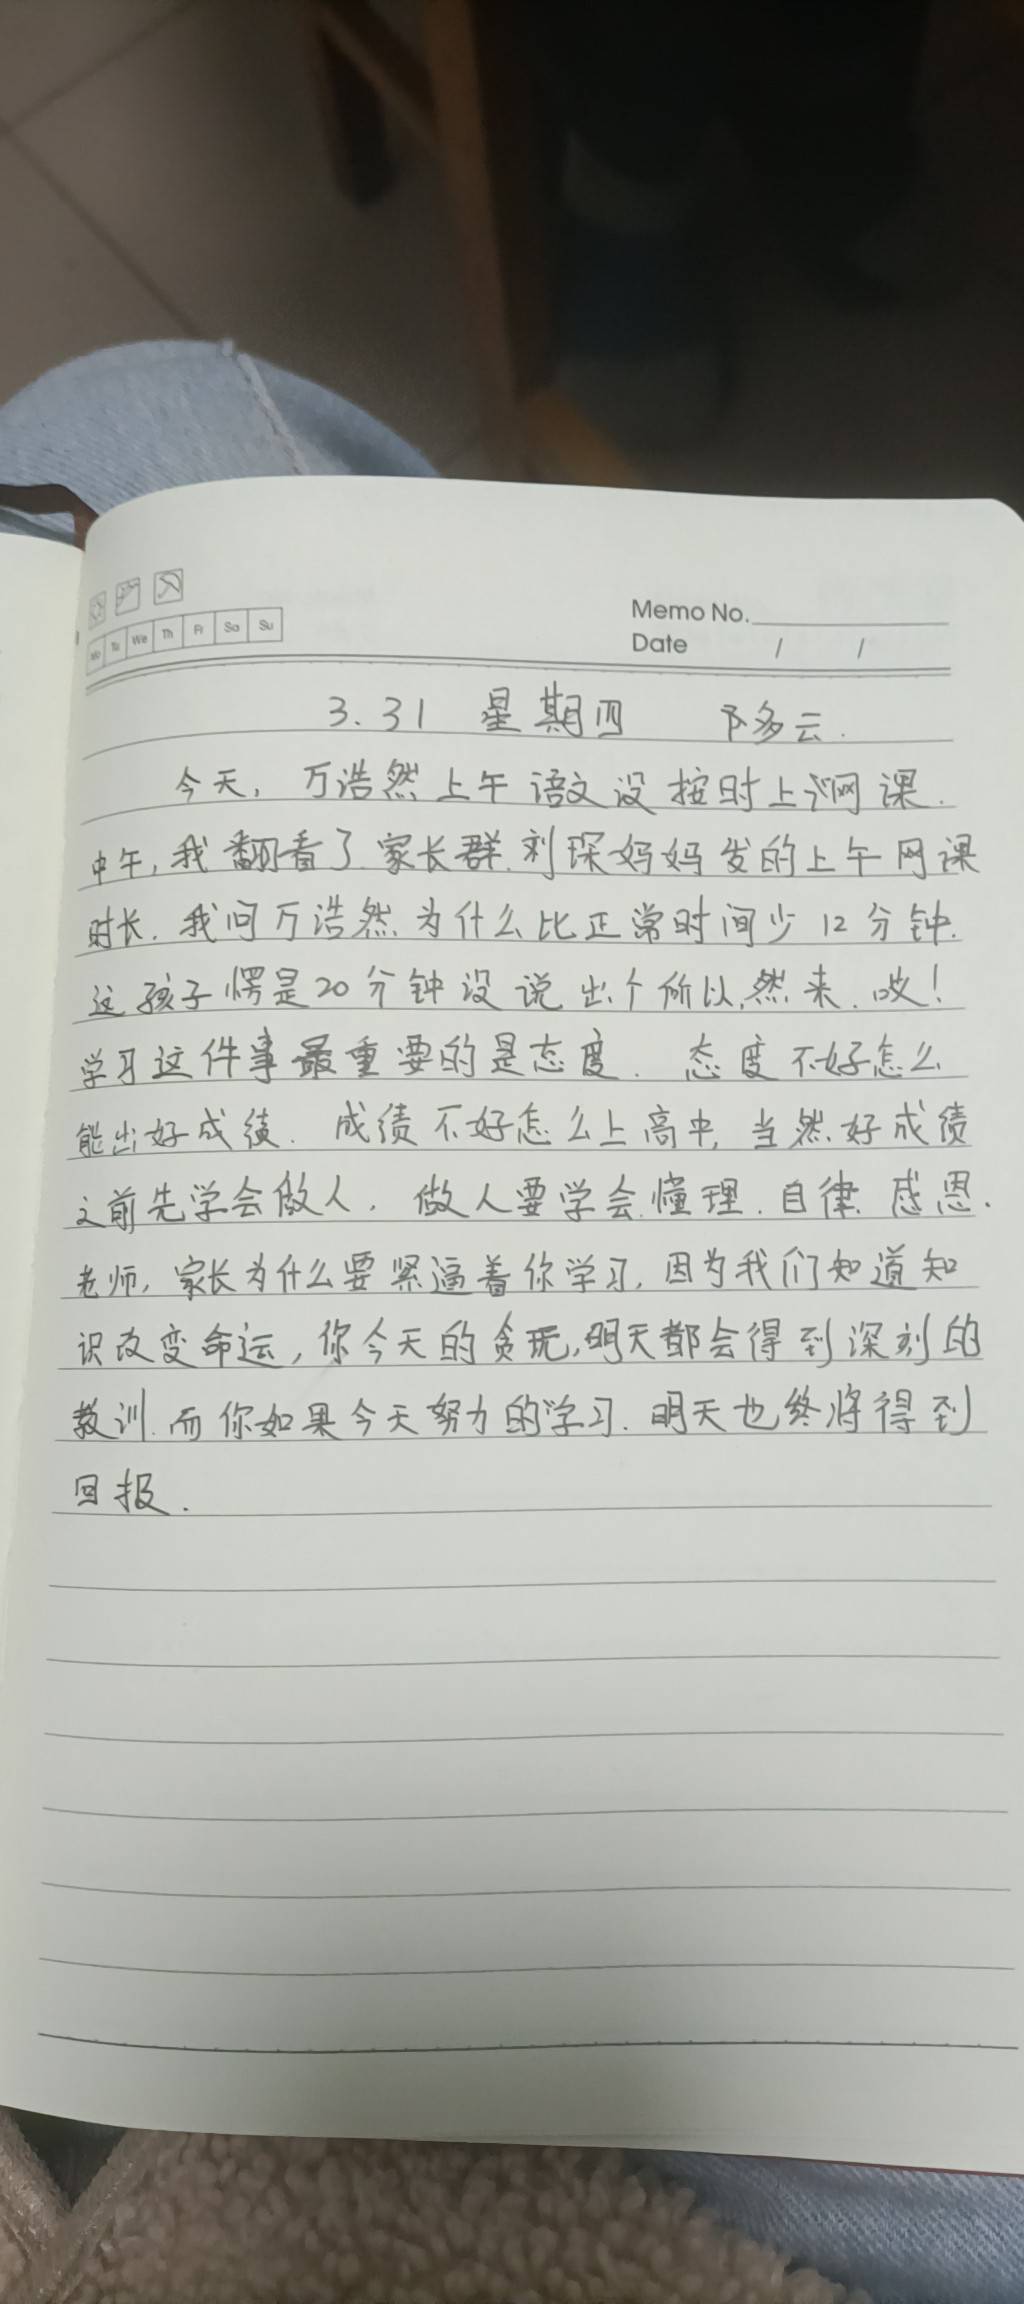 Memo No.
Mo Tu We Th Fr Sa Su
Date / /
3.31 星期四 多云.
今天, 万浩然上午语文没按时上网课.
中午,我翻看了家长群.刘琛妈妈发的上午网课
时长. 我问万浩然为什么比正常时间少12分钟.
这孩子愣是20分钟没说出个所以然来.哎!
学习这件事最重要的是态度. 态度不好怎么
能出好成绩. 成绩不好怎么上高中,当然好成绩
之前先学会做人. 做人要学会懂理.自律.感恩.
老师,家长为什么要紧逼着你学习,因为我们知道知
识改变命运,你今天的贪玩,明天都会得到深刻的
教训.而你如果今天努力的学习.明天也终将得到
回报.